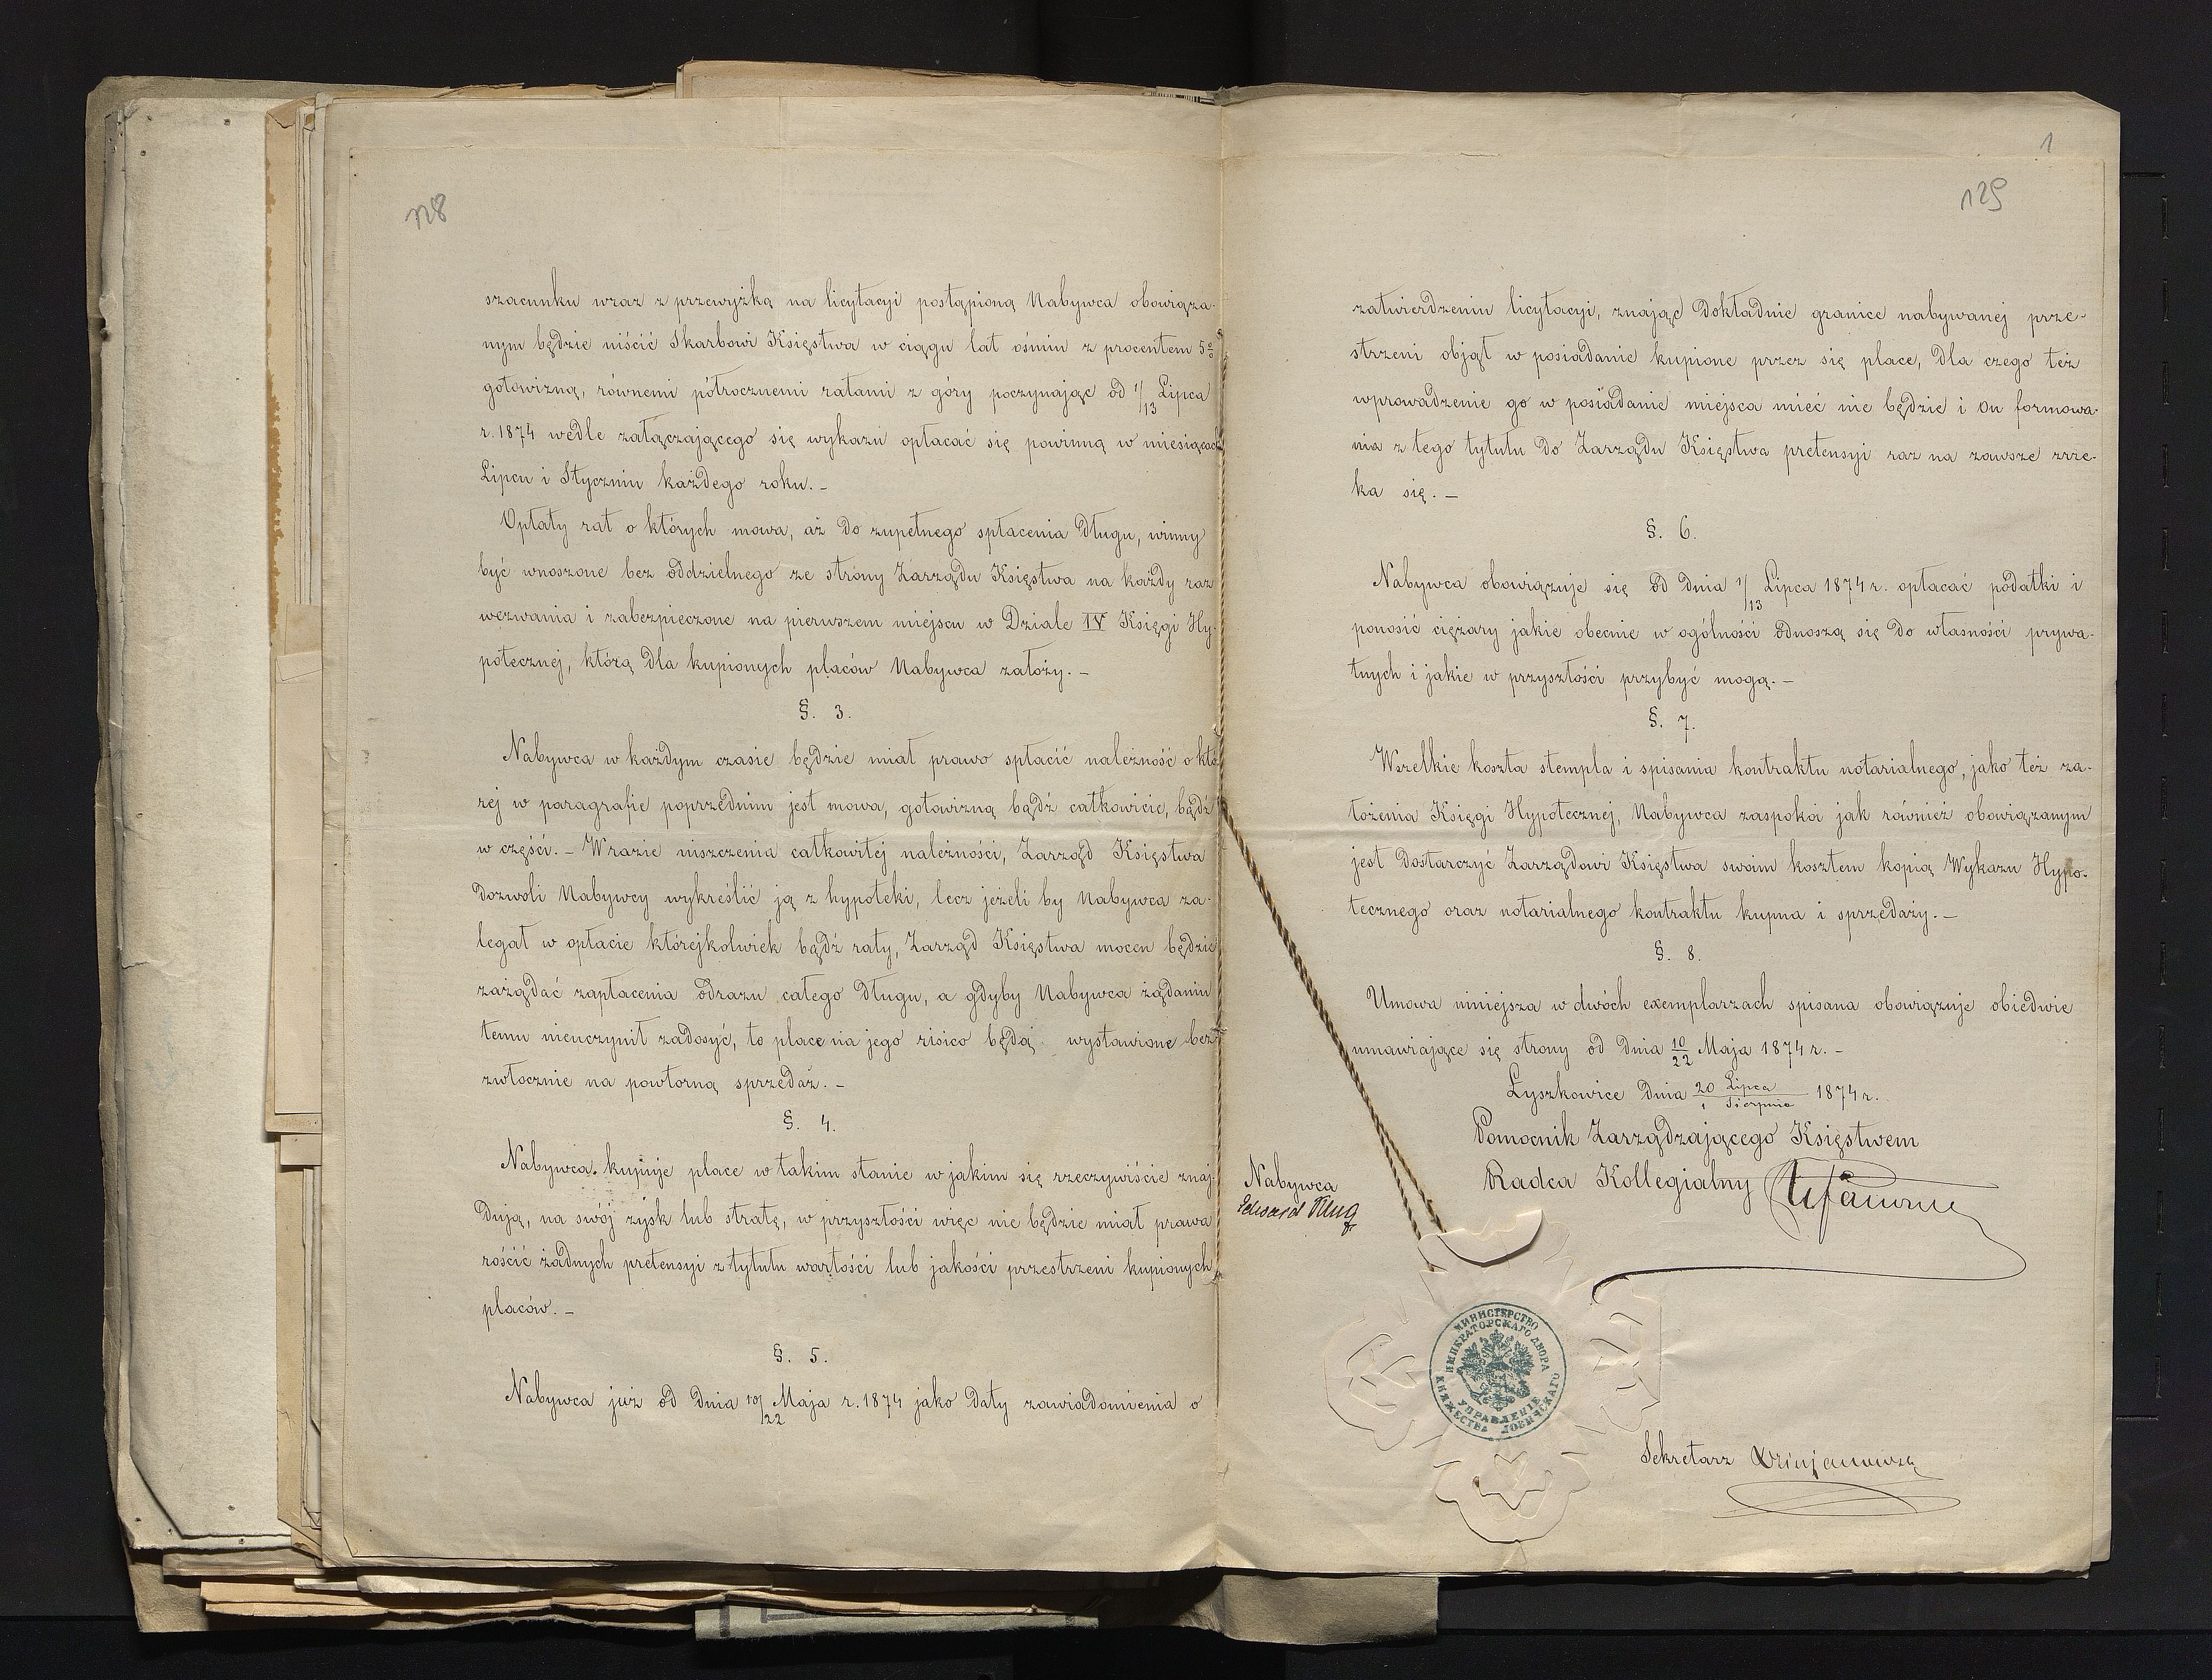 128
szacunku wraz z przewyżką na licytacyi postąpioną Nabywca obowiąza-
nym będzie uiścić Skarbowi Księstwa w ciągu lat ośmiu z procentem 5%
gotowizną, równemi półrocznemi ratami z góry poczynając od 1/13 Lipca
r. 1874 wedle załączającego się wykazu opłacać się powinną w miesiącach
Lipcu i Styczniu każdego roku. –
Opłaty rat o których mowa, aż do zupełnego spłacenia długu, winny
być wnoszone bez oddzielnego ze strony Zarządu Księstwa na każdy raz
wezwania i zabezpieczone na pierwszem miejscu w Dziale IV Księgi Hy-
potecznej, którą dla kupionych placów Nabywca założy. –
§. 3.
Nabywca w każdym czasie będzie miał prawo spłacić należność o któ
rej w paragrafie poprzednim jest mowa, gotowizną bądź całkowicie, bądź
w części. – W razie uiszczenia całkowitej należności, Zarząd Księstwa
dozwoli Nabywcy wykreślić ją z hypoteki, lecz jeżeli by Nabywca za-
legał w opłacie którejkolwiek bądź raty, Zarząd Księstwa mocen będzie
zażądać zapłacenia odrazu całego długu, a gdyby Nabywca żądaniu
temu nieuczynił zadosyć, to place na jego risico będą wystawione bez
zwłocznie na powtorną sprzedaż. –
§. 4.
Nabywca kupuje place w takim stanie w jakim się rzeczywiście znaj-
dują, na swój zysk lub stratę, w przyszłości więc nie będzie miał prawa
rościć żadnych pretensyi z tytułu wartości lub jakości przestrzeni kupionych
placów. –
§. 5.
Nabywca już od dnia 10/22 Maja r. 1874 jako daty zawiadomienia o
1
129
zatwierdzeniu licytacyi, znając dokładnie granice nabywanej prze-
strzeni objął w posiadanie kupione przez się place, dla czego też
wprowadzenie go w posiadanie miejsca mieć nie będzie i On formowa-
nia z tego tytułu do Zarządu Księstwa pretensyi raz na zawsze zrze-
ka się. –
§. 6.
Nabywca obowiązuje się od dnia 1/13 Lipca 1874 r. opłacać podatki i
ponosić ciężary jakie obecnie w ogólności odnoszą się do własności prywa-
tnych i jakie w przyszłości przybyć mogą. –
§. 7.
Wszelkie koszta stempla i spisania kontraktu notarialnego, jako też za-
łożenia Księgi Hypotecznej, Nabywca zaspokoi jak również obowiązanym
jest dostarczyć Zarządowi Księstwa swoim kosztem kopią Wykazu Hypo-
tecznego oraz notarialnego kontraktu kupna i sprzedaży. –
§. 8.
Umowa niniejsza w dwóch exemplarzach spisana obowiązuje obiedwie
umawiające się strony od dnia 10/22 Maja 1874 r. –
Łyszkowice dnia 20 Lipca/1 Sierpnia 1874 r.
Pomocnik Zarządzającego Księstwem
Radca Kollegialny
Nabywca
Edward Klug
МИНИСТЕРСТВО
ИМПЕРАТОРСКАГО ДВОРА
УПРАВЛЕНІЕ
КНЯЖЕСТВА ЛОВИЧСКАГО
Sekretarz